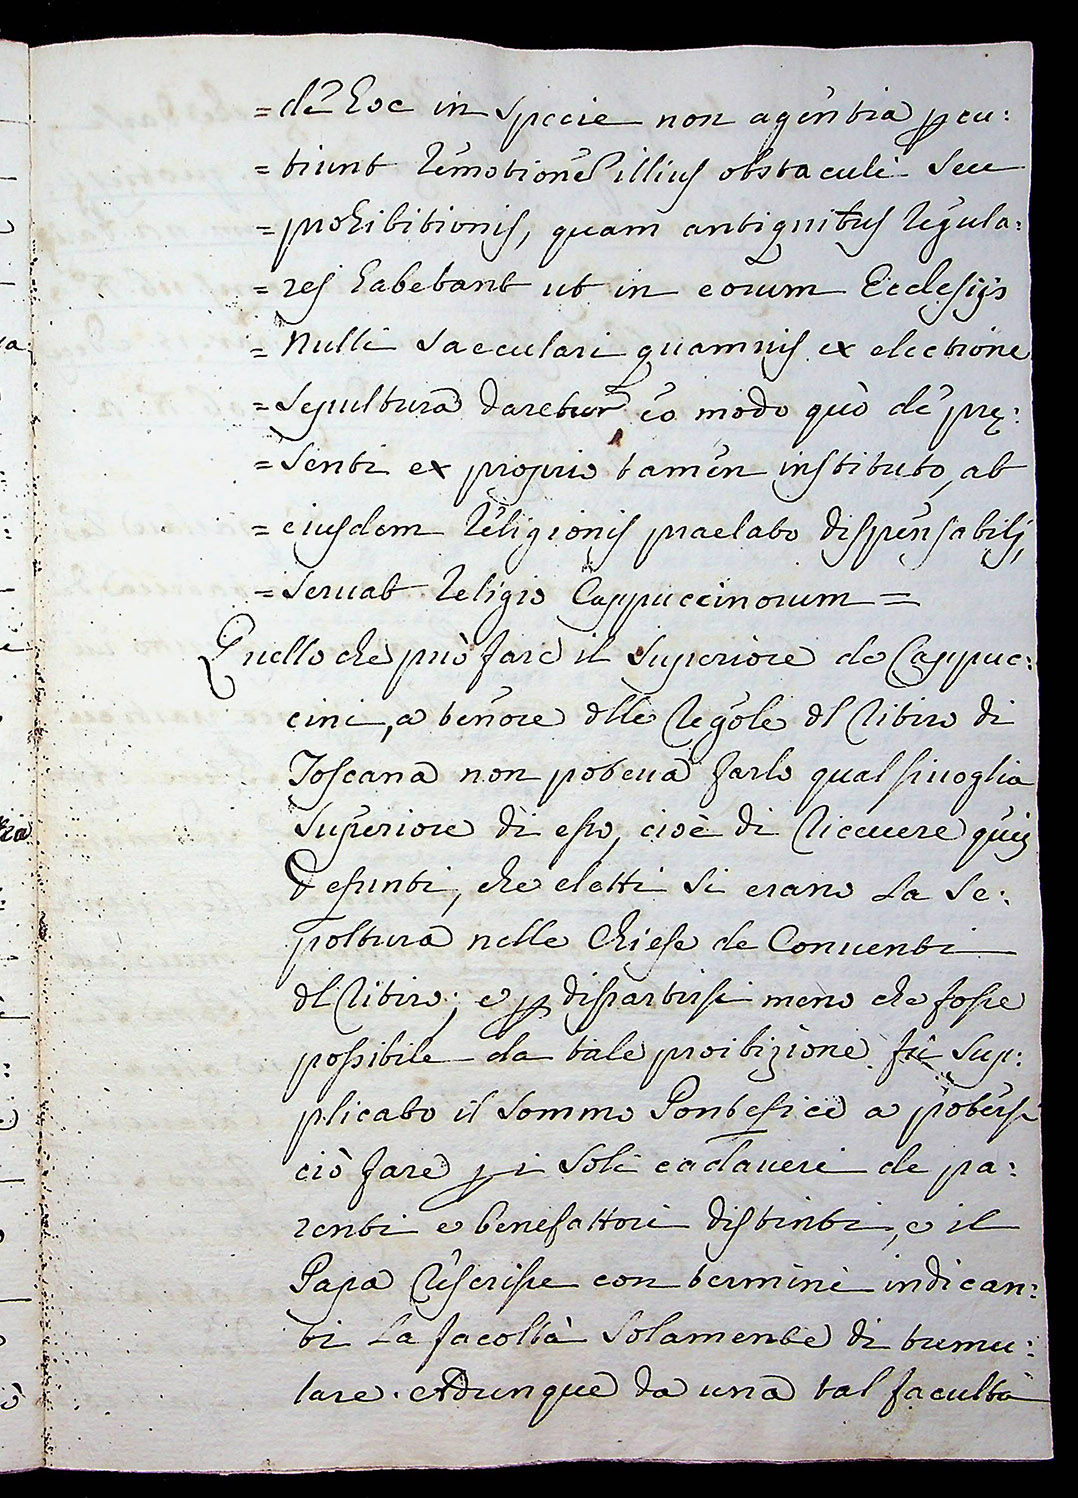 = de hoc in specie non agentia percu:
= tiunt remotione illius obstaculi seu
= prohibitionis, quam antiquitus regula:
= res habebant ut in eorum Ecclesijs
= nulli saeculari quamuis ex electione
= sepultura daretur eo modo quò de pre:
= senti ex proprio tamen instituto, ab
= eiusdem religionis praelato dispensabilj,
= seruat religio Cappuccinorum =
Quello che può fare il superiore de Cappuc:
cini, a tenore dlle regole dl ritiro di
Toscana non poteua farlo qualsiuoglia
superiore di esso, cioè di riceuere quei
defunti, che eletti si erano la se:
poltura nelle chiese de Conuenti
dl ritiro; e p dispartirsi meno che fosse
possibile da tale proibizione fù sup:
plicato il sommo Pontefice a potersi
ciò fare p i soli cadaueri de pa:
renti e benefattori distinti, e il
Papa rescrisse con termini indican:
ti la facoltà solamente di tumu:
lare. Adunque da una tal facultà